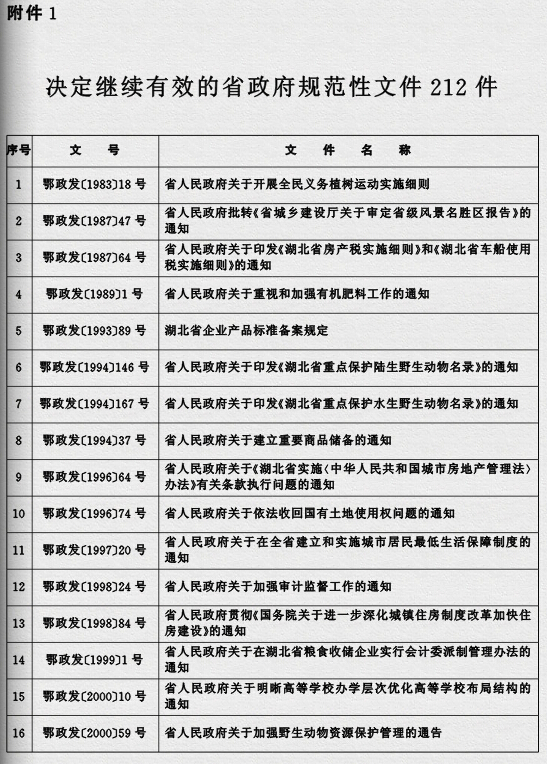 附件1
决定继续有效的省政府规范性文件212件
序号 文 号 文 件 名 称
1 鄂政发〔1983〕18号 省人民政府关于开展全民义务植树运动实施细则
2 鄂政发〔1987〕47号 省人民政府批转《省城乡建设厅关于审定省级风景名胜区报告》的
通知
3 鄂政发〔1987〕64号 省人民政府关于印发《湖北省房产税实施细则》和《湖北省车船使用
税实施细则》的通知
4 鄂政发〔1989〕1号 省人民政府关于重视和加强有机肥料工作的通知
5 鄂政发〔1993〕89号 湖北省企业产品标准备案规定
6 鄂政发〔1994〕146号 省人民政府关于印发《湖北省重点保护陆生野生动物名录》的通知
7 鄂政发〔1994〕167号 省人民政府关于印发《湖北省重点保护水生野生动物名录》的通知
8 鄂政发〔1994〕37号 省人民政府关于建立重要商品储备的通知
9 鄂政发〔1996〕64号 省人民政府关于《湖北省实施〈中华人民共和国城市房地产管理法〉
办法》有关条款执行问题的通知
10 鄂政发〔1996〕74号 省人民政府关于依法收回国有土地使用权问题的通知
11 鄂政发〔1997〕20号 省人民政府关于在全省建立和实施城市居民最低生活保障制度的
通知
12 鄂政发〔1998〕24号 省人民政府关于加强审计监督工作的通知
13 鄂政发〔1998〕84号 省人民政府贯彻《国务院关于进一步深化城镇住房制度改革加快住
房建设》的通知
14 鄂政发〔1999〕1号 省人民政府关于在湖北省粮食收储企业实行会计委派制管理办法的
通知
15 鄂政发〔2000〕10号 省人民政府关于明晰高等学校办学层次优化高等学校布局结构的
通知
16 鄂政发〔2000〕59号 省人民政府关于加强野生动物资源保护管理的通告